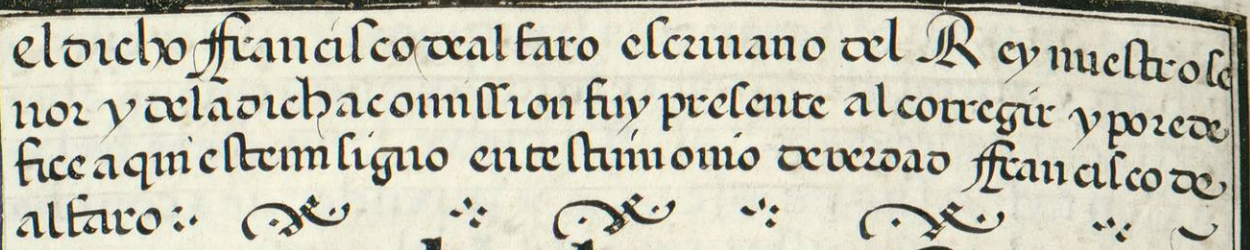 el dicho ffrancisco de alfaro escriuano del Rey nuestro se
nor y de la dicha comission fuy presente al corregir y por ede
fice aqui este mi signo en testimonio de verdad ffrancisco de
alfaro